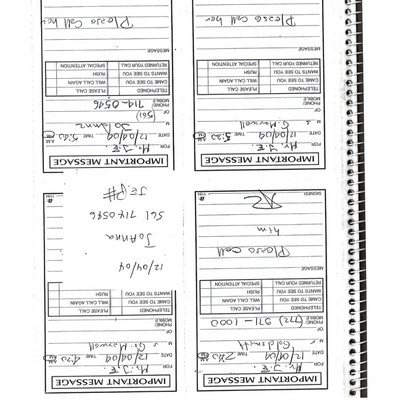 IMPORTANT MESSAGE
FOR Mr. J.E.
DATE 12/04/04 TIME
M Goldsmith
OF
PHONE
MOBILE (772) 971-1000
TELEPHONED PLEASE CALL
CAME TO SEE YOU WILL CALL AGAIN
WANTS TO SEE YOU RUSH
RETURNED YOUR CALL SPECIAL ATTENTION
MESSAGE
Please call
him
SIGNED
IMPORTANT MESSAGE
Mr. J.E.
DATE 12/04/04 TIME 4:20
M s G. Maxwell
OF
PHONE
MOBILE
TELEPHONED PLEASE CALL
CAME TO SEE YOU WILL CALL AGAIN
WANTS TO SEE YOU RUSH
RETURNED YOUR CALL SPECIAL ATTENTION
12/04/04
Joanna
561 714 0546
IMPORTANT MESSAGE
Mr. J.E.
DATE 12/04/04 TIME 5:20
M s G. Maxwell
OF
MOBILE
TELEPHONED PLEASE CALL
CAME TO SEE YOU WILL CALL AGAIN
WANTS TO SEE YOU RUSH
RETURNED YOUR CALL SPECIAL ATTENTION
MESSAGE
Please call her
IMPORTANT MESSAGE
Mr. J.E.
DATE 12/04/04 TIME 5:20
M Joanna
OF (561)
MOBILE 714-0546
TELEPHONED PLEASE CALL
CAME TO SEE YOU WILL CALL AGAIN
WANTS TO SEE YOU RUSH
RETURNED YOUR CALL SPECIAL ATTENTION
MESSAGE
Please call her